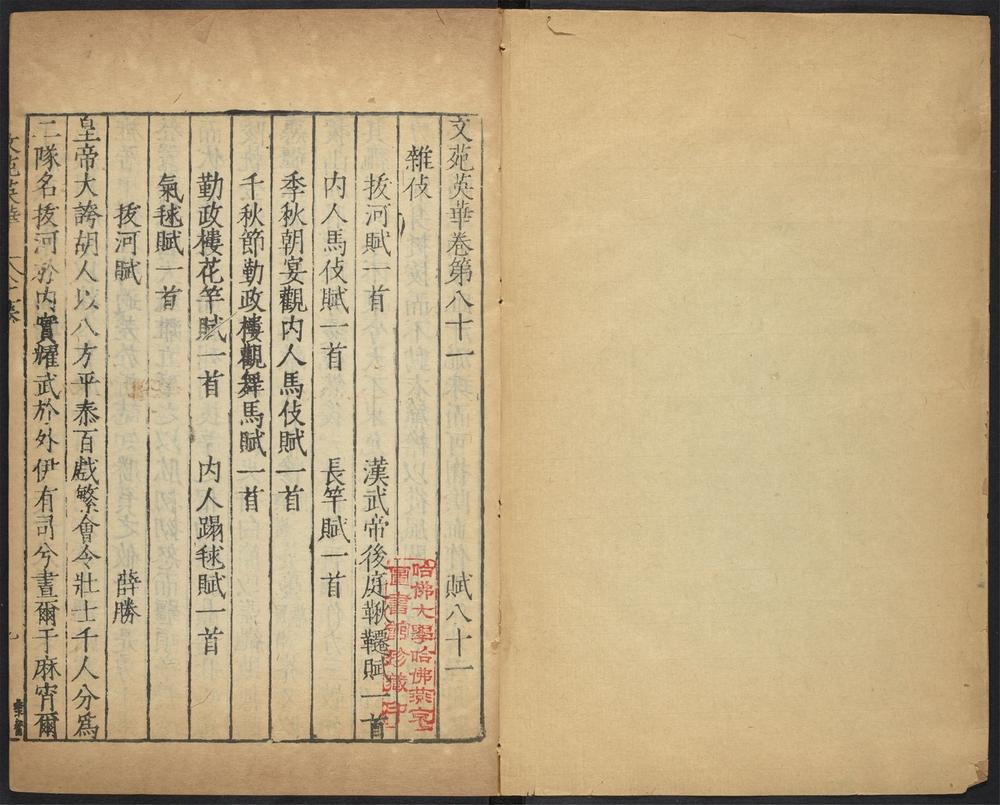 文苑英華卷第八十一 賦八十一
雜伎
拔河賦一首 漢武帝後庭鞦韆賦一首
内人馬伎賦一首 長竿賦一首
季秋朝宴觀内人馬伎賦一首
千秋節勤政樓觀舞馬賦一首
勤政樓花竿賦一首 内人蹋毬賦一首
氣毬賦一首
拔河賦 薛勝
皇帝大誇胡人以八方平泰百戲繁會令壯士千人分爲
二隊名拔河於内實耀武於外伊有司兮晝爾于麻宵爾
文苑英華
哈佛大學哈佛燕京
圖書館珍藏印